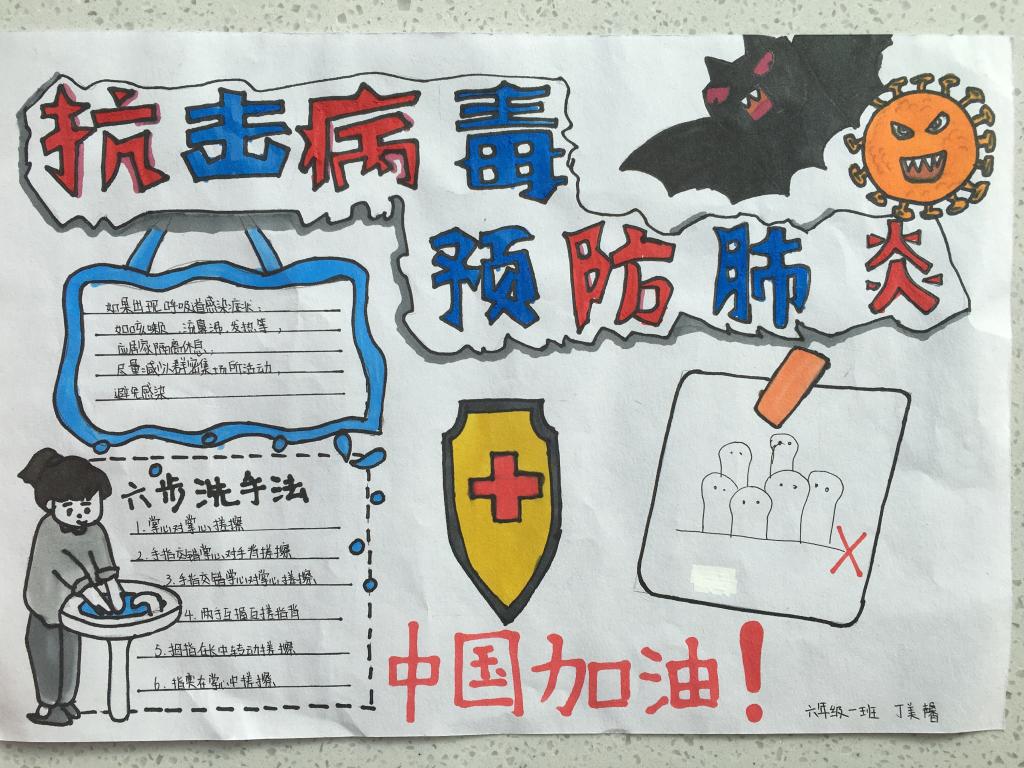 抗击病毒
预防肺炎
如果出现呼吸道感染症状，
如咳嗽、流鼻涕、发热等，
应居家隔离休息，
尽量减少群密集场所活动，
避免感染
六步洗手法
1.掌心对掌心搓擦
2.手指交错掌心对手背搓擦
3.手指交错掌心对掌心搓擦
4.两手互握互搓指背
5.拇指在长中转动搓擦
6.指尖在掌心中搓擦
中国加油!
六年级一班 丁美馨